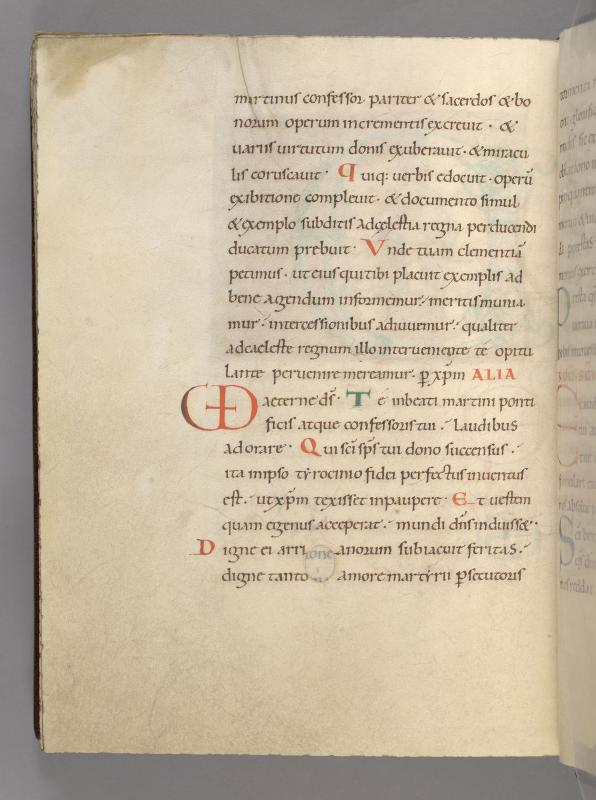 martinus confessor. pariter & sacerdos & bo
norum operum incrementis excreuit · &
uariis uirtutum donis exuberauit · & miracu
lis coruscauit · Quiq: uerbis edocuit · operū
exibitione compleuit · & documento simul
& exemplo subditis adcęlestia regna perducendi
ducatum prebuit · Vnde tuam clementiā
petimus · ut eius qui tibi placuit exemplis ad
bene agendum informemur · meritis munia
mur · intercessionibus adiuuemur · qualiter
adcaeleste regnum illo interueniente te opitu
lante peruenire mereamur · p xpm ALIA
aeterne ds · Te inbeati martini ponti
ficis atque confessoris tui · laudibus
adorare · Qui sci sps tui dono succensus ·
ita inipso tyrocinio fidei perfectus inuentus
est · ut xpm texisset inpaupere · Et uestem
quam egenus acceperat · mundi dns induisse& ·
Digne ei arrianorum subiacuit feritas ·
digne tanto amore martyrii psecutoris